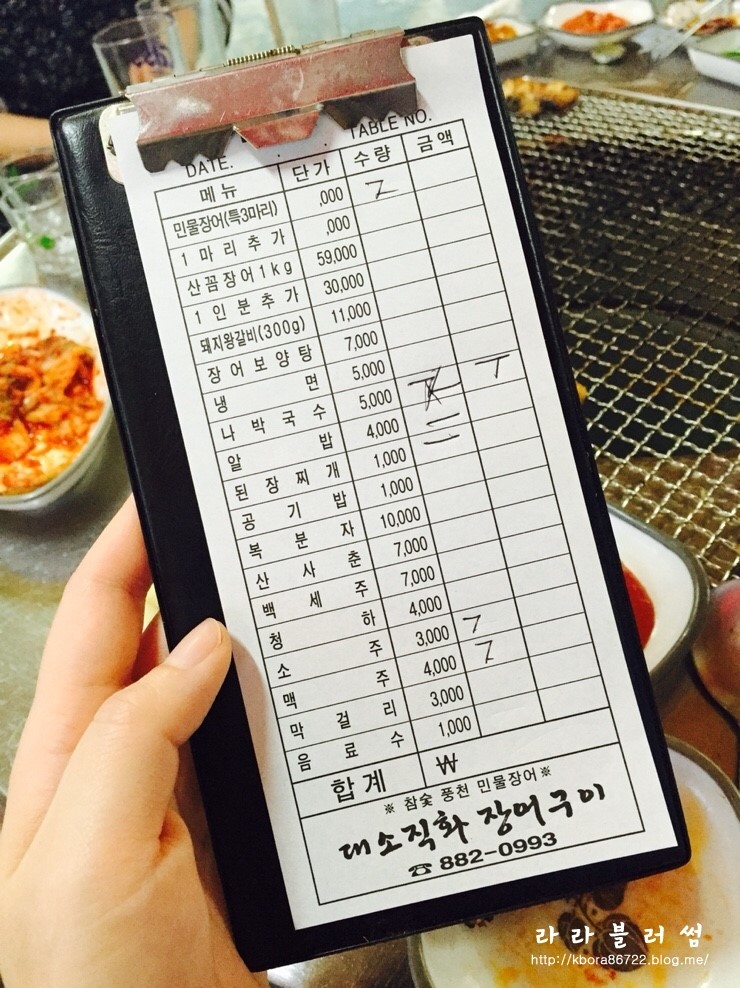 DATE. . . TABLE NO.
메뉴 단가 수량 금액
민물장어(특3마리) ,000
1마리추가 ,000
산꼼장어1kg 59,000
1인분추가 30,000
돼지왕갈비(300g) 11,000
장어보양탕 7,000
냉면 5,000
나박국수 5,000
알밥 4,000
된장찌개 1,000
공기밥 1,000
복분자 10,000
산사춘 7,000
백세주 7,000
청하 4,000
소주 3,000
맥주 4,000
막걸리 3,000
음료수 1,000
합계 ₩
※ 참숯 풍천 민물장어※
대소직화 장어구이
☎ 882-0993
라라블러썸
http://kbora86722.blog.me/